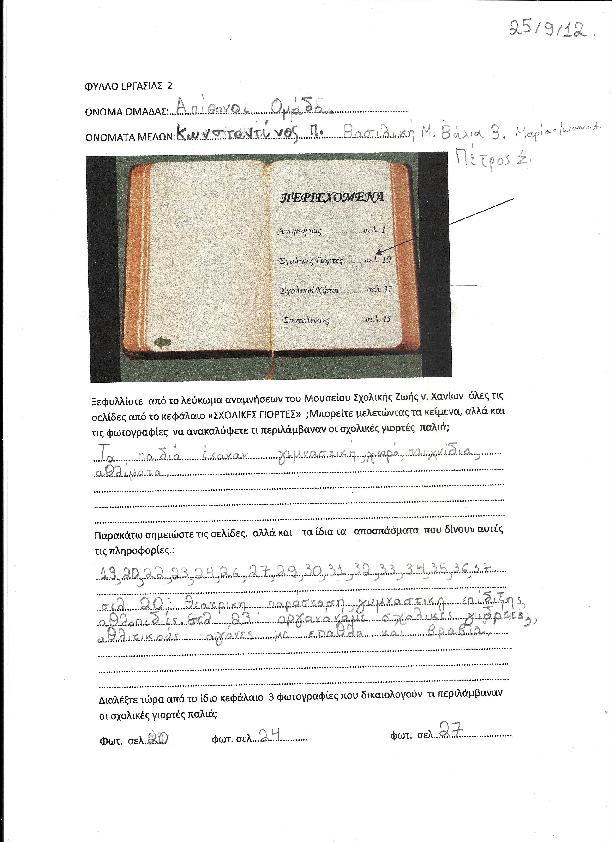 25/9/12.
ΦΥΛΛΟ ΕΡΓΑΣΙΑΣ 2
ΟΝΟΜΑ ΟΜΑΔΑΣ: Απίθανοι Ομάδα
ΟΝΟΜΑΤΑ ΜΕΛΩΝ: Κωνσταντίνος Π. Βασιλική Μ. Βάλια Ζ. Μαρία
Πέτρος Ζ.
ΠΕΡΙΕΧΟΜΕΝΑ
σελ. 1
Σχολικές Γιορτές σελ. 19
σελ.
σελ.
Ξεφυλλίστε από το λεύκωμα αναμνήσεων του Μουσείου Σχολικής Ζωής ν. Χανίων όλες τις
σελίδες από το κεφάλαιο «ΣΧΟΛΙΚΕΣ ΓΙΟΡΤΕΣ» ;Μπορείτε μελετώντας τα κείμενα, αλλά και
τις φωτογραφίες να ανακαλύψετε τι περιλάμβαναν οι σχολικές γιορτές παλιά;
Τα παδιά έκαναν γυμναστική, χορό, παιχνίδια,
αθλιματα
Παρακάτω σημειώστε τις σελίδες, αλλά και τα ίδια τα αποσπάσματα που δίνουν αυτές
τις πληροφορίες.:
19,20,22,23,24,26,27,29,30,31,32,33,34,35,36,37
σελ 20: θεατρικη παράσταση, γυμναστική επίδιξης
σελ 23: σχολικές γιορτές,
αθλιτικους αγονες με επαθλα και βραβια
Διαλέξτε τώρα από το ίδιο κεφάλαιο 3 φωτογραφίες που δικαιολογούν τι περιλάμβαναν
οι σχολικές γιορτές παλιά;
Φωτ. σελ. 20 φωτ. σελ. 24 φωτ. σελ. 27